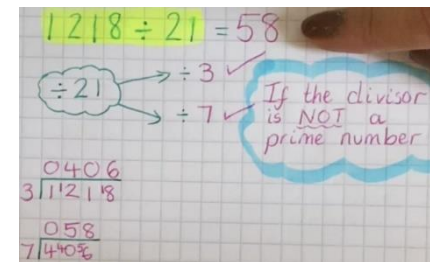 1218 ÷ 21 = 58
÷21
÷ 3 ✓
÷ 7 ✓
If the divisor
is NOT a
prime number
0406
3|1¹21¹8
058
7|4⁴40⁵6